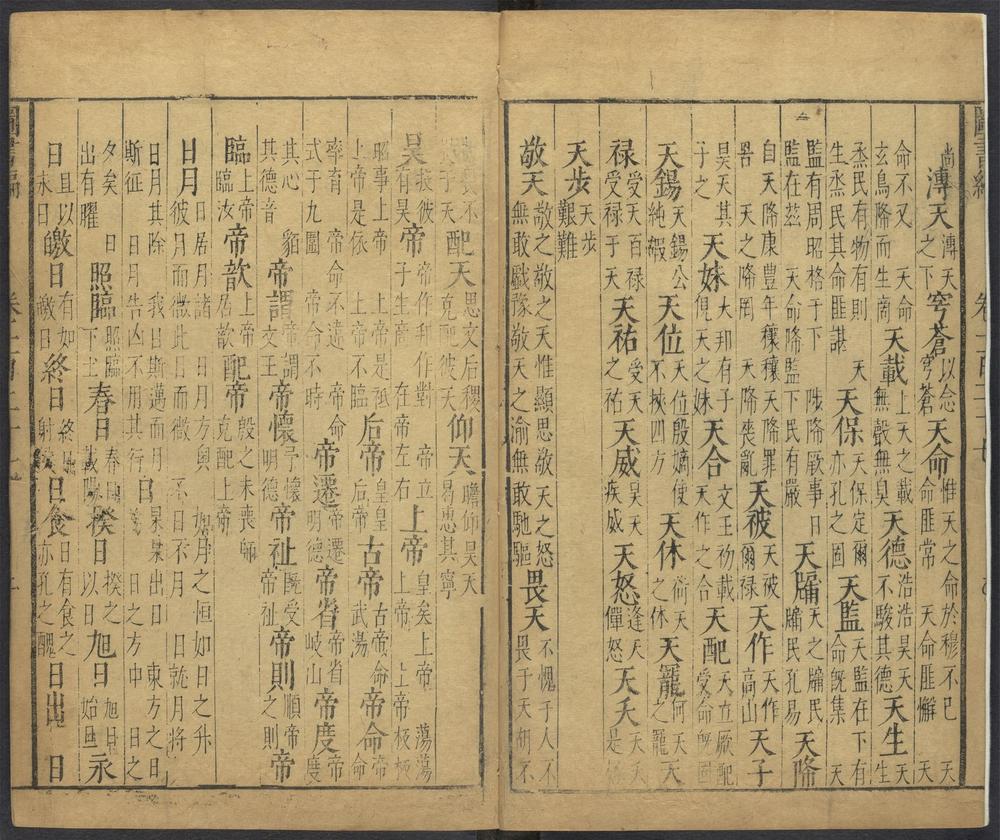 圖書編
卷一百二十七
溥天 溥天之下 穹蒼 以念穹蒼 天命 惟天之命於穆不已 命匪常 天命匪懈 天
命不又 天命玄鳥降而生商 天載 上天之載無聲無臭 天德 浩浩昊天不駿其德 天生 天生
烝民有物有則 天生烝民其命匪諶 天保 天保定爾亦孔之固 天監 天監在下有命既集 天
監有周昭格于下 陟降厥事日監在茲 天命降監下民有嚴 天牖 天之牖民牖民孔易 天降
自天降康豐年穰穰 天降罪罟 天之降罔 天降喪亂 天被 天被爾祿 天作 天作高山 天子
昊天其子之 天妹 大邦有子俔天之妹 天合 文王初載天作之合 天配 天立厥配受命既固
天錫 天錫公純嘏 天位 天位殷嫡使不挾四方 天休 何天之休 天寵 何天之寵 天
祿 受天百祿受祿于天 天祐 受天之祐 天威 昊天疾威 天怒 逢天僤怒 天夭 天夭是
天步 天步艱難
敬天 敬之敬之天惟顯思敬天之怒無敢戲豫敬天之渝無敢馳驅 畏天 不愧于人不畏于天胡不
不 于天 配天 思文后稷克配彼天 仰天 瞻仰昊天曷惠其寧
昊 投彼有昊 帝 帝作邦作對 帝立子生商 在帝左右 上帝 皇矣上帝 蕩蕩上帝 上帝板板
昭事上帝 上帝是祗 上帝是依 上帝不臨 后帝 皇皇后帝 古帝 古帝命武湯 帝命 帝命
率育 帝命不違 帝命式于九圍 帝命不時 帝遷 帝遷明德 帝省 帝省岐山 帝度 帝度
其心 貊其德音 帝謂 帝謂文王 帝懷 予懷明德 帝祉 既受帝祉 帝則 順帝之則 帝
臨 上帝臨汝 帝歆 上帝居歆 配帝 殷之未喪師克配上帝
日月 日居月諸 日月方奧 如月之恒如日之升 彼月而微此日而微 不日不月 日就月將
日月其除 我日斯邁而月斯征 日月告凶不用其行 日 杲杲出日 東方之日 日之方中 日之
夕矣 日出有曜 照臨 照臨下土 春日 春日載陽 揆日 揆之以日 旭日 旭日始旦 永
日 且以永日 皦日 有如皦日 終日 終日射 日食 日有食之亦孔之醜 日出 日